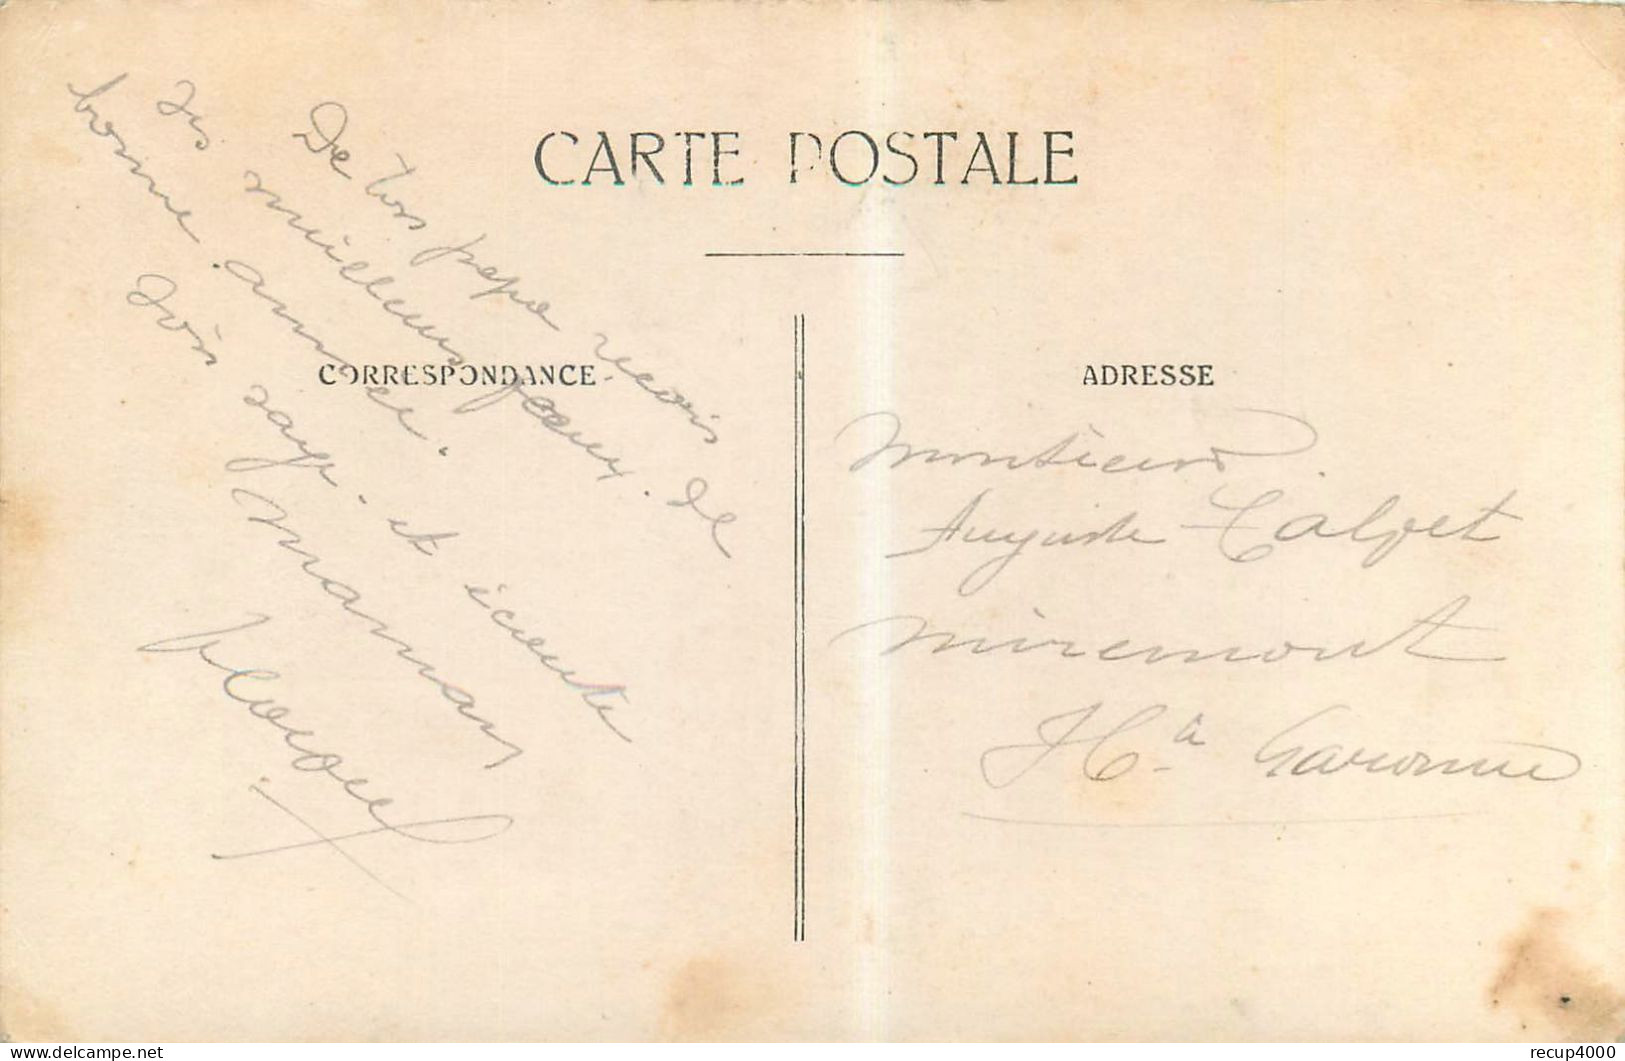 CARTE POSTALE
CORRESPONDANCE
De ton papa recois
ses meilleurs voeux. de
bonne année.
sois sage. et écoute
maman
ADRESSE
Monsieur
Auguste Calvet
Miremont
Hte Garonne
recup4000